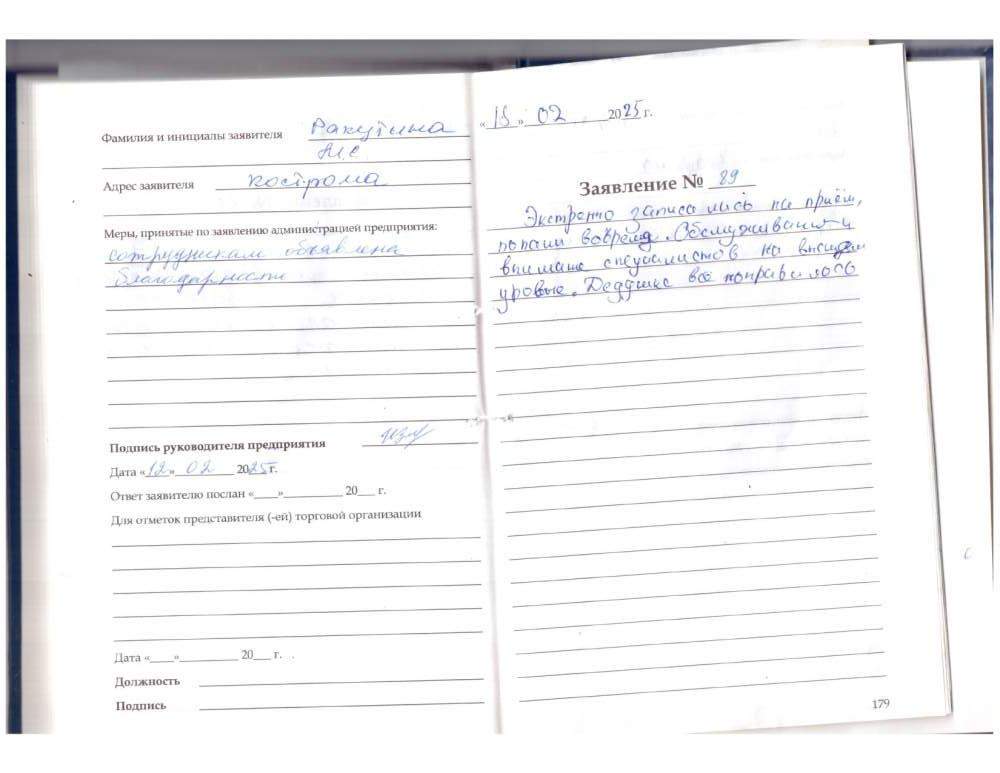 Фамилия и инициалы заявителя Ракутина
М.С.
Адрес заявителя Кострома
Меры, принятые по заявлению администрацией предприятия:
сотрудникам объявлена
благодарность
Подпись руководителя предприятия
Дата «12» 02 2025 г.
Ответ заявителю послан «___»__________ 20___ г.
Для отметок представителя (-ей) торговой организации
Дата «___»__________ 20___ г.
Должность
Подпись
«13» 02 2025 г.
Заявление № 89
Экстренно записались на приём,
попали вовремя. Обслуживание и
внимание специалистов на высшем
уровне. Дедушке всё понравилось
179